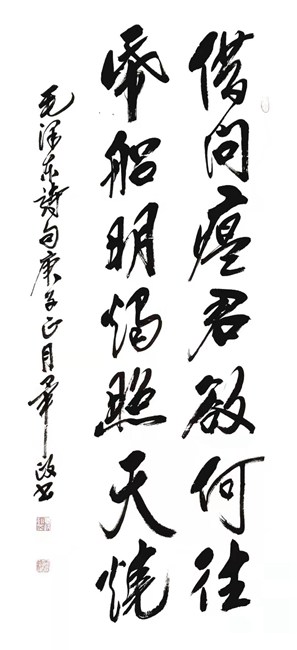 借问瘟君欲何往
帋船明燭照天燒
毛泽东詩句庚子正月